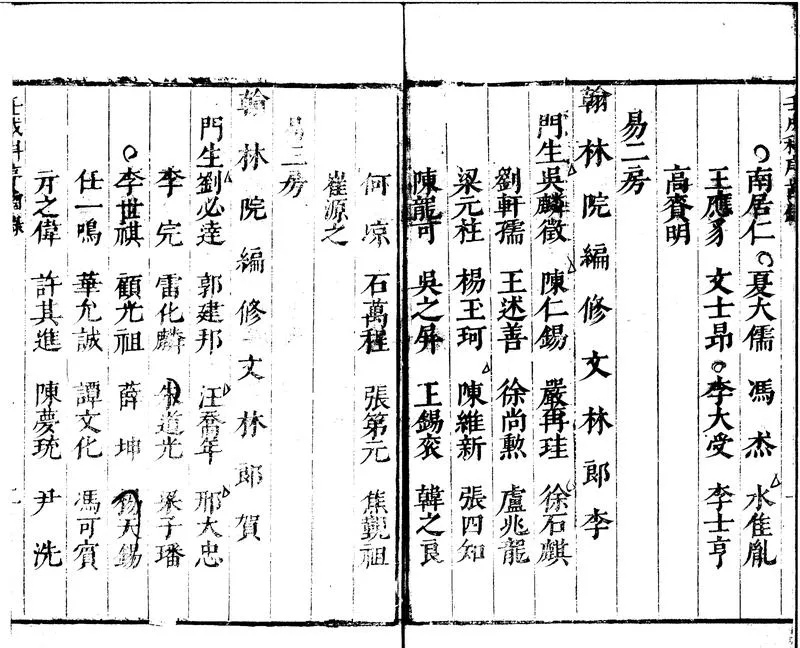 南居仁 夏大儒 馮杰 水佳胤
王應豸 文士昂 李大受 李士亨
高賚明
易二房
翰林院編修文林郎李
門生吳麟徵 陳仁錫 嚴再珪 徐石麒
劉軒孺 王述善 徐尚勲 盧兆龍
梁元柱 楊玉珂 陳維新 張四知
陳龍可 吳之屏 王錫袞 韓之良
何凉 石萬程 張第元 焦覲祖
崔源之
易三房
翰林院編修文林郎賀
門生劉必達 郭建邦 汪喬年 邢大忠
李完 雷化麟 朱道光 梁子璠
李世祺 顧光祖 薛坤 楊天錫
任一鳴 華允誠 譚文化 馮可賓
亓之偉 許其進 陳夢琉 尹洗
壬戌科序齒錄